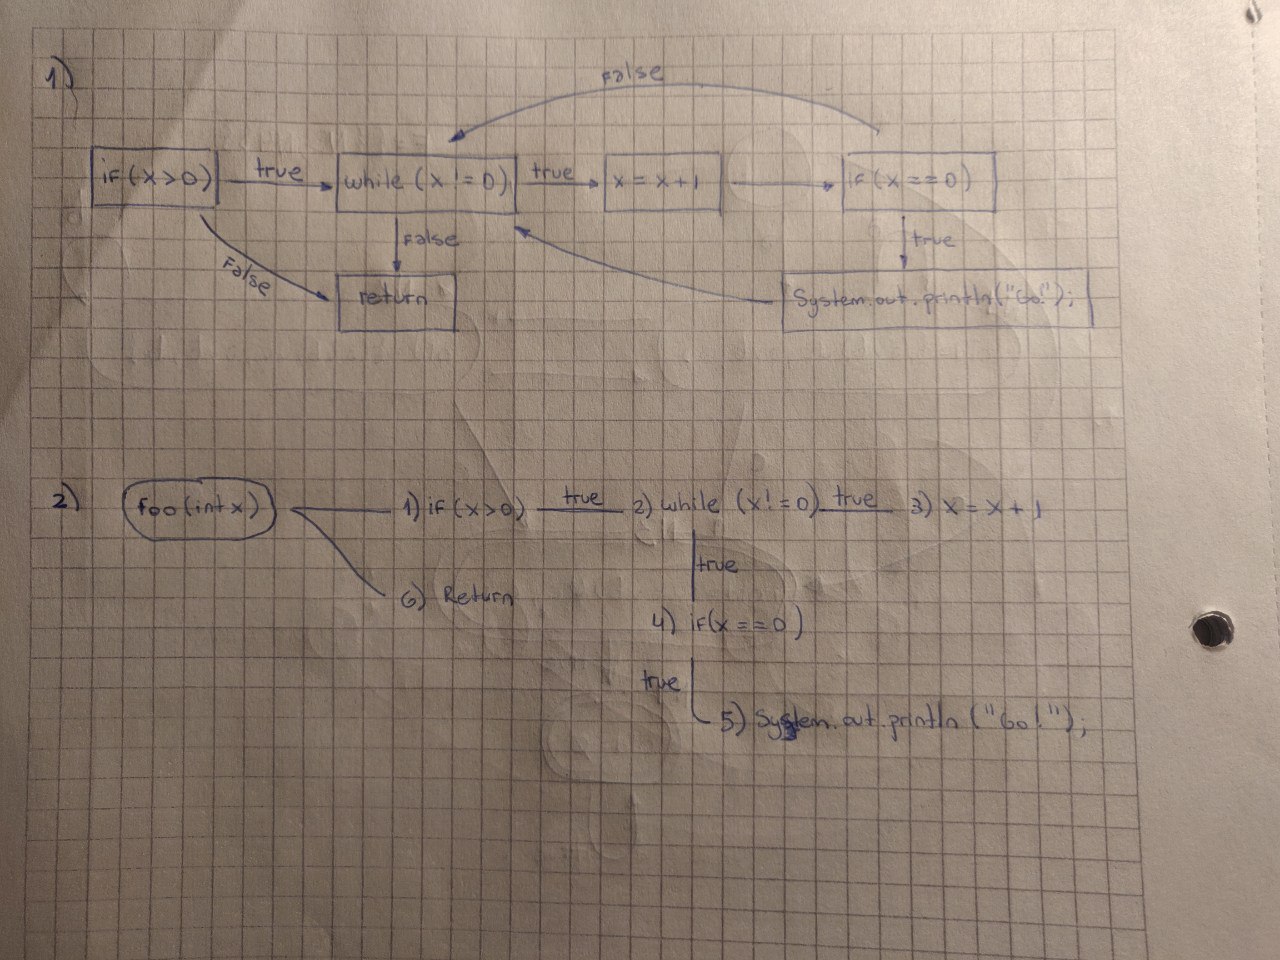 1)
False
if (x>0) true while (x != 0) true x = x+1 if (x == 0)
False true
False
return System.out.println("Go!");
2) foo(int x) 1) if (x>0) true 2) while (x != 0) true 3) x = x + 1
true
6) Return
4) if(x == 0)
true
5) System.out.println ("Go!");